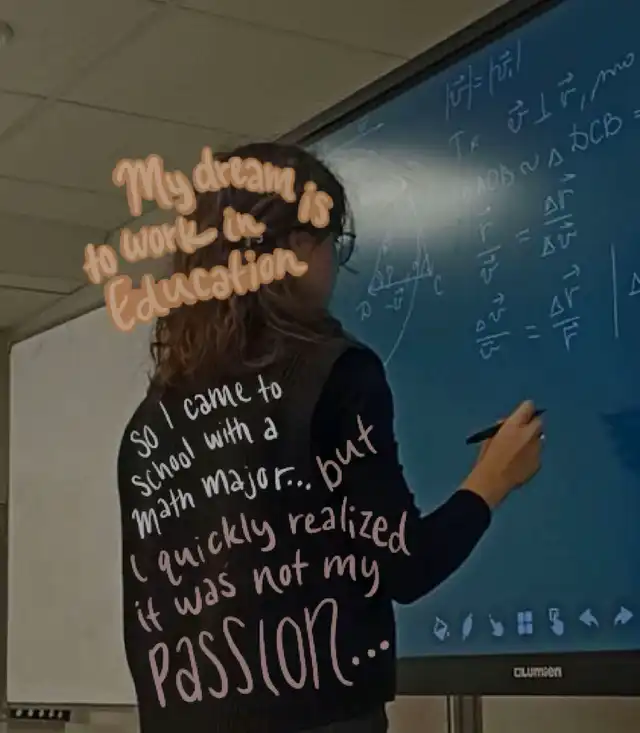 My dream is
to work in
Education
so I came to
school with a
math major... but
I quickly realized
it was not my
passion...
|v⃗|=|v⃗₁|
v⃗ ⊥ r⃗,
DCB =
r⃗/v⃗ = Δr⃗/Δv⃗
Δv⃗/v⃗ = Δr⃗/r⃗
CLUMIEN